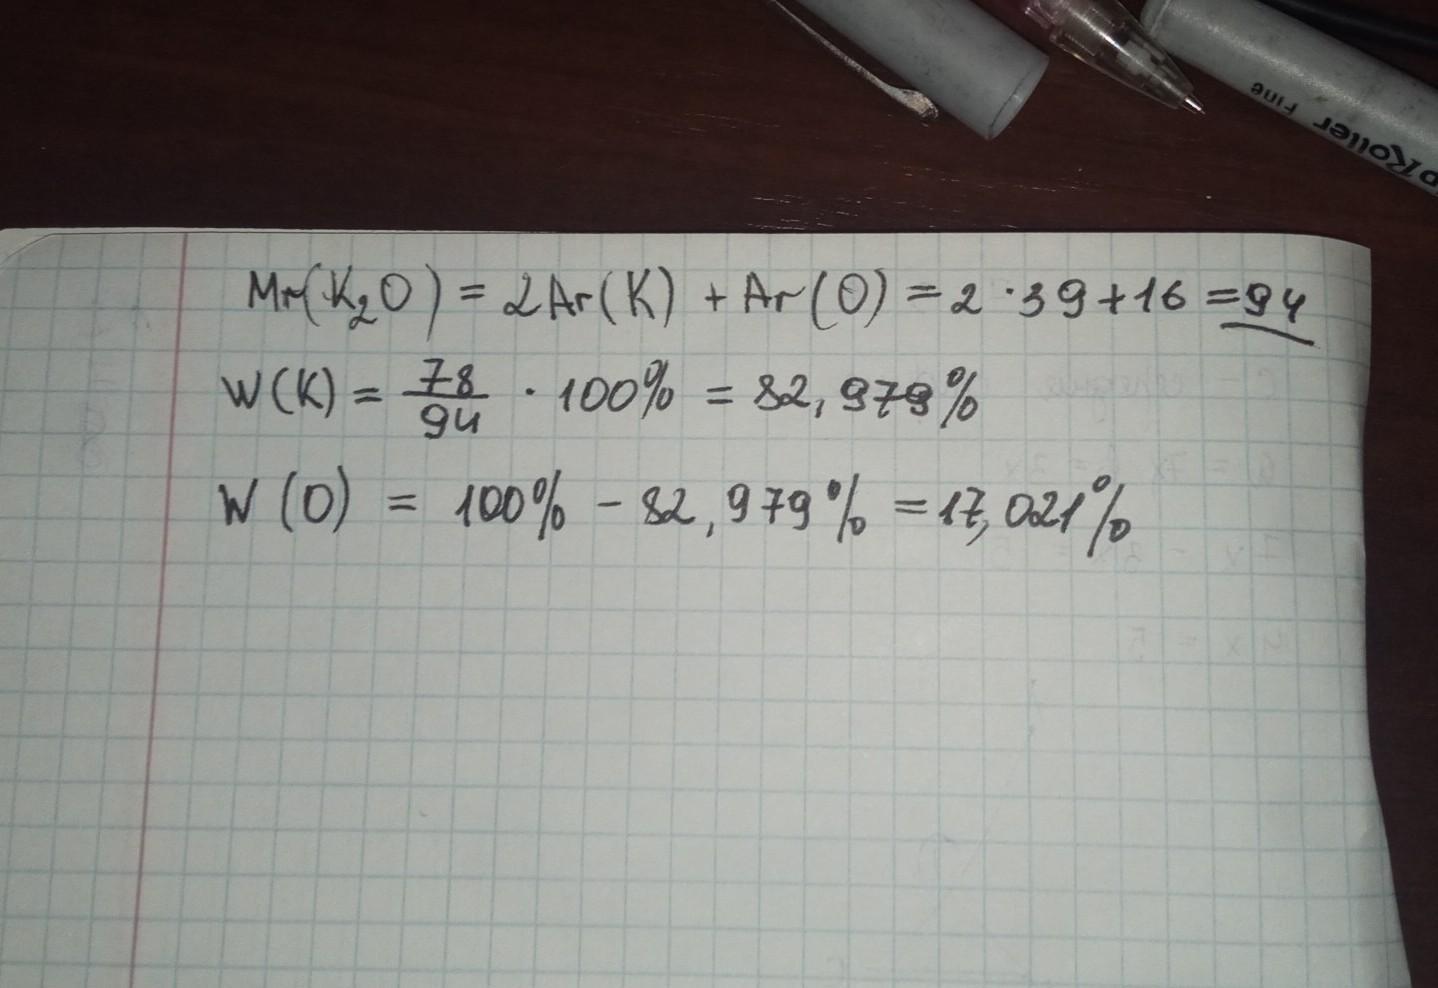 Fine
Roller
Mr(K₂O) = 2Ar(K) + Ar(O) = 2·39+16 = 94
W(K) = 78/94 · 100% = 82,979%
W(O) = 100% - 82,979% = 17,021%